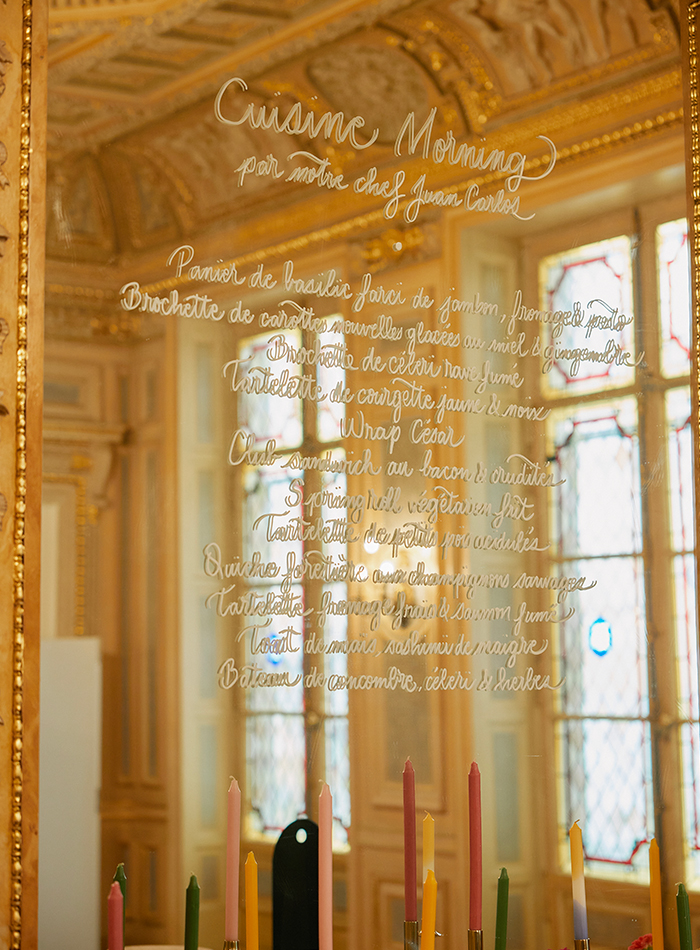 Cuisine Morning
par notre chef Juan Carlos
Panier de basilic farci de jambon, fromage & pesto
Brochette de carottes nouvelles glacées au miel & gingembre
Brochette de céleri rave fumé
Tartelette de courgette jaune & noix
Wrap César
Club sandwich au bacon & crudités
Spring roll végétarien frit
Tartelette de petits pois acidulés
Quiche forestière aux champignons sauvages
Tartelette fromage frais & saumon fumé
Toast de maïs, sashimi de maigre
Bateau de concombre, céleri & herbes